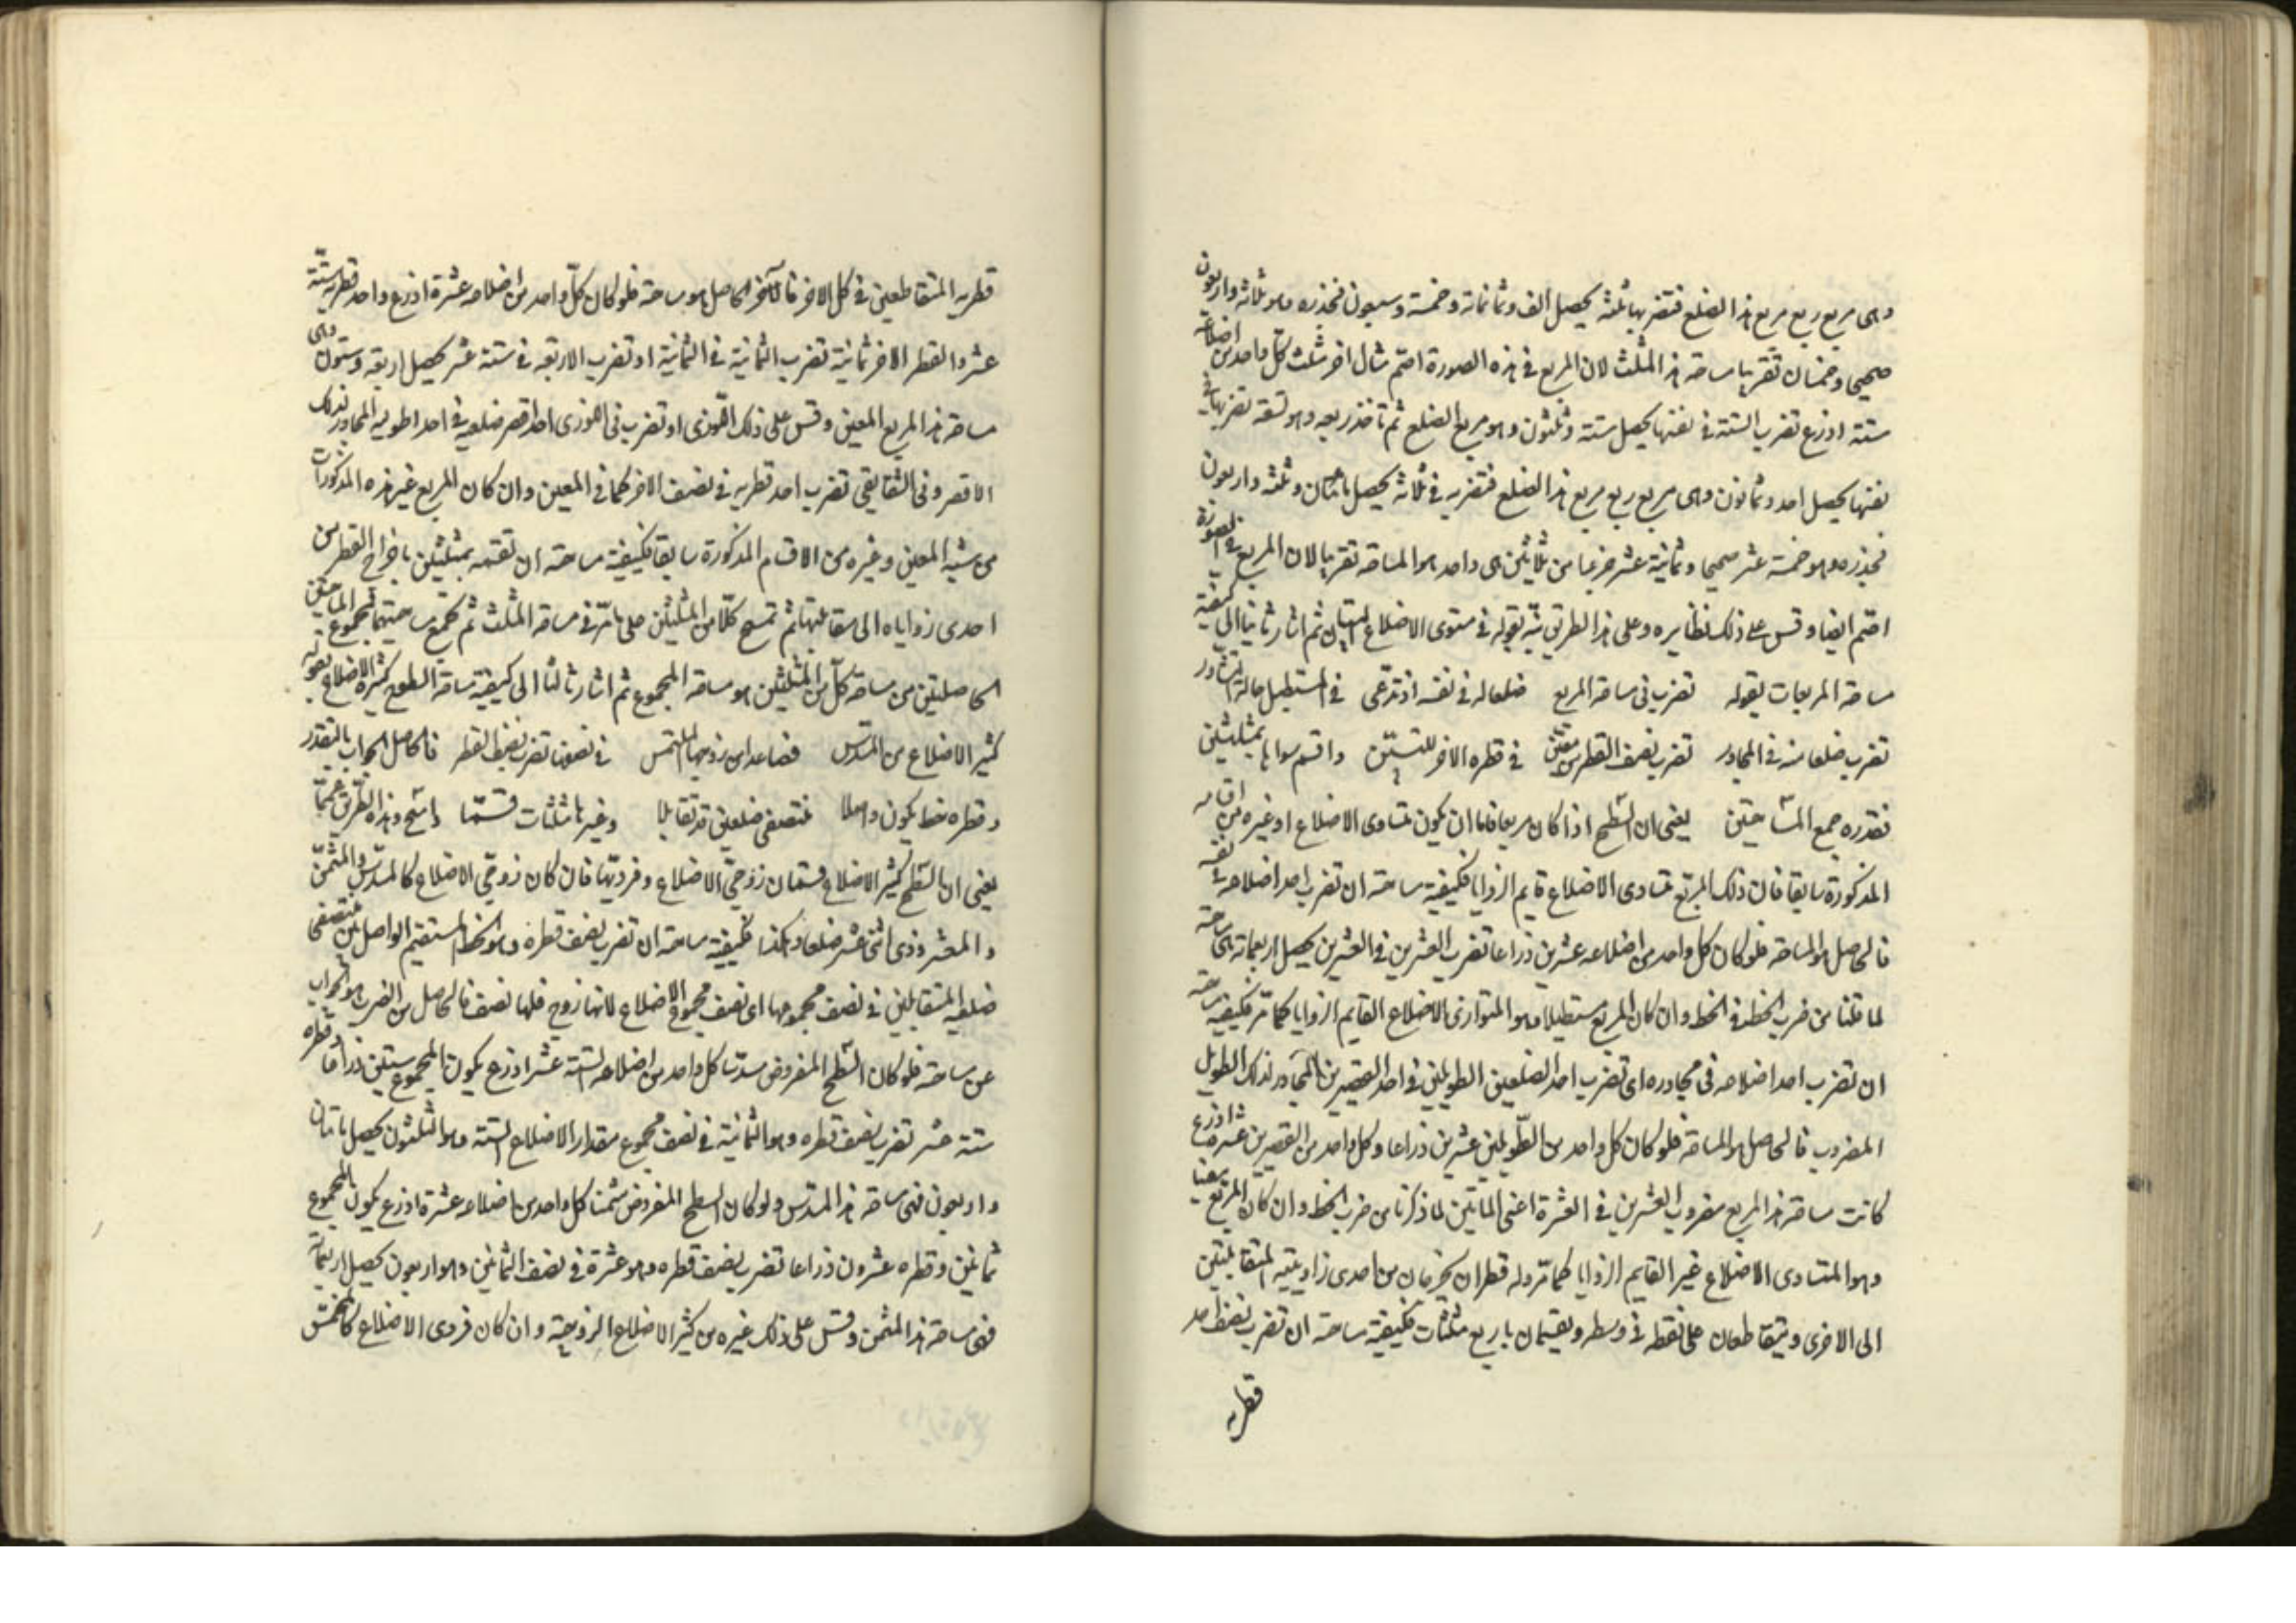 وهى مربع ربع مربع هذا الضلع فتضربها ثلثه يحصل الف وثمانمائة وخمسة وسبعون فجذره وهو ثلاثه واربعون
صحيحا وخمسان تقريبا مساحة هذا المثلث لان المربع فى هذه الصورة اصم مثال اخر مثلث كل واحد من اضلاعه
ستة اذرع تضرب الستة فى نفسها يحصل ستة وثلثون وهو مربع الضلع ثم تاخذ ربعه وهو تسعة تضربها فى
نفسها يحصل احد وثمانون وهى مربع ربع مربع هذا الضلع فتضربه فى ثلاثة يحصل ماتان وثلثه واربعون
فجذره وهو خمسة عشر صحيحا وثمانية عشر جزءا من ثلاثين هى واحد هو المساحة تقريبا لان المربع فى الصورة
اصم ايضا وقس على ذلك نظايره وعلى هذا الطريق نبّه بقوله فى متساوى الاضلاع ثم اشار ثانيا الى كيفية
مساحة المربعات بقوله تضرب فى مساحة المربع ضلعا له فى نفسه اذ تدعى فى المستطيل حالة
تضرب ضلعا منه فى المجاور تضرب نصف القطر من معين فى قطره الاخر واقسم سواها بمثلثين
فقدره جمع المساحتين يعنى ان السطح اذا كان مربعا فاما ان يكون متساوى الاضلاع او غيره من اقسامه
المذكورة سابقا فان ذلك المربع متساوى الاضلاع قايم الزوايا فكيفية مساحته ان تضرب احد اضلاعه فى نفسه
فالحاصل هو المساحة فلو كان كل واحد من اضلاعه عشرين ذراعا تضرب العشرين فى العشرين يحصل اربعمائة هى مساحته
لما قلنا من ضرب الخط فى الخط وان كان المربع مستطيلا وهو المتوازى الاضلاع القايم الزوايا كما مر فكيفية مساحته
ان تضرب احد اضلاعه فى مجاوره اى تضرب احد الضلعين الطويلين فى احد القصيرين المجاور لذلك الطويل
المضروب فالحاصل هو المساحة فلو كان كل واحد من الطويلين عشرين ذراعا وكل واحد من القصيرين عشرة اذرع
كانت مساحة هذا المربع مضروب العشرين فى العشرة اعنى المأتين لما ذكرنا من ضرب الخط وان كان المربع معينا
وهو المتساوى الاضلاع غير القايم الزوايا كما مر وله قطران يخرجان من احدى زاويتيه المتقابلتين
الى الاخرى ويتقاطعان على نقطه فى وسطه ويقسمان باربع مثلثات فكيفية مساحته ان تضرب نصف احد
قطريه
قطريه المتقاطعين فى كل الاخر فالحاصل هو مساحته فلو كان كل واحد من اضلاعه عشرة اذرع واحد قطريه ستة
عشر والقطر الاخر ثمانية تضرب الثمانية فى الثمانية او تضرب الاربعة فى ستة عشر يحصل اربعة وستون وهى
مساحة هذا المربع المعين وقس على ذلك اللوزى او تضرب فى اللوزى احد اقصر ضلعيه فى احد اطوليه المجاور لذلك
الاقصر وفى الشقايقى تضرب احد قطريه فى نصف الاخر كما فى المعين وان كان المربع غير هذه المذكورات
من شبه المعين وغيره من الاقسام المذكورة سابقا فكيفية مساحته ان تقسمه بمثلثين باخراج القطر من
احدى زواياه الى مقابلتها ثم تمسح كلا من المثلثين على ما مر فى مساحة المثلث ثم تجمع مساحتيهما فمجموع المساحتين
الحاصلتين من مساحة كل من المثلثين هو مساحة المجموع ثم اشار ثالثا الى كيفية مساحة السطوح كثيرة الاضلاع بقوله
كثير الاضلاع من المسدس فصاعدا من زوجها الملتمس فى نصفها تضرب نصف القطر فالحاصل الجواب بالتقدر
وقطره خط يكون واصلا منتصفى ضلعين قد تقابلا وغيرها مثلثات قسما وامسح وهذا الطريق عمما
يعنى ان السطح كثير الاضلاع قسمان زوجى الاضلاع وفرديها فان كان زوجى الاضلاع كالمسدس والمثمن
والمعشر وذى اثنى عشر ضلعا وهكذا فكيفية مساحته ان تضرب نصف قطره وهو الخط المستقيم الواصل بين منتصفى
ضلعيه المتقابلين فى نصف مجموعها اى نصف مجموع الاضلاع لانها زوج فلها نصف فالحاصل من الضرب هو الجواب
عن مساحته فلو كان السطح المفروض مسدسا كل واحد من اضلاعه الستة عشر اذرع يكون المجموع ستين ذراعا وقطره
ستة عشر تضرب نصف قطره وهو الثمانية فى نصف مجموع مقدار الاضلاع الستة وهو الثلثون يحصل ماتان
واربعون فهى مساحة هذا المسدس ولو كان السطح المفروض مثمنا كل واحد من اضلاعه عشرة اذرع يكون المجموع
ثمانين وقطره عشرون ذراعا تضرب نصف قطره وهو عشرة فى نصف الثمانين وهو اربعون يحصل اربعمائة
فهى مساحة هذا المثمن وقس على ذلك غيره من كثير الاضلاع الزوجية وان كان فردى الاضلاع كالمخمس